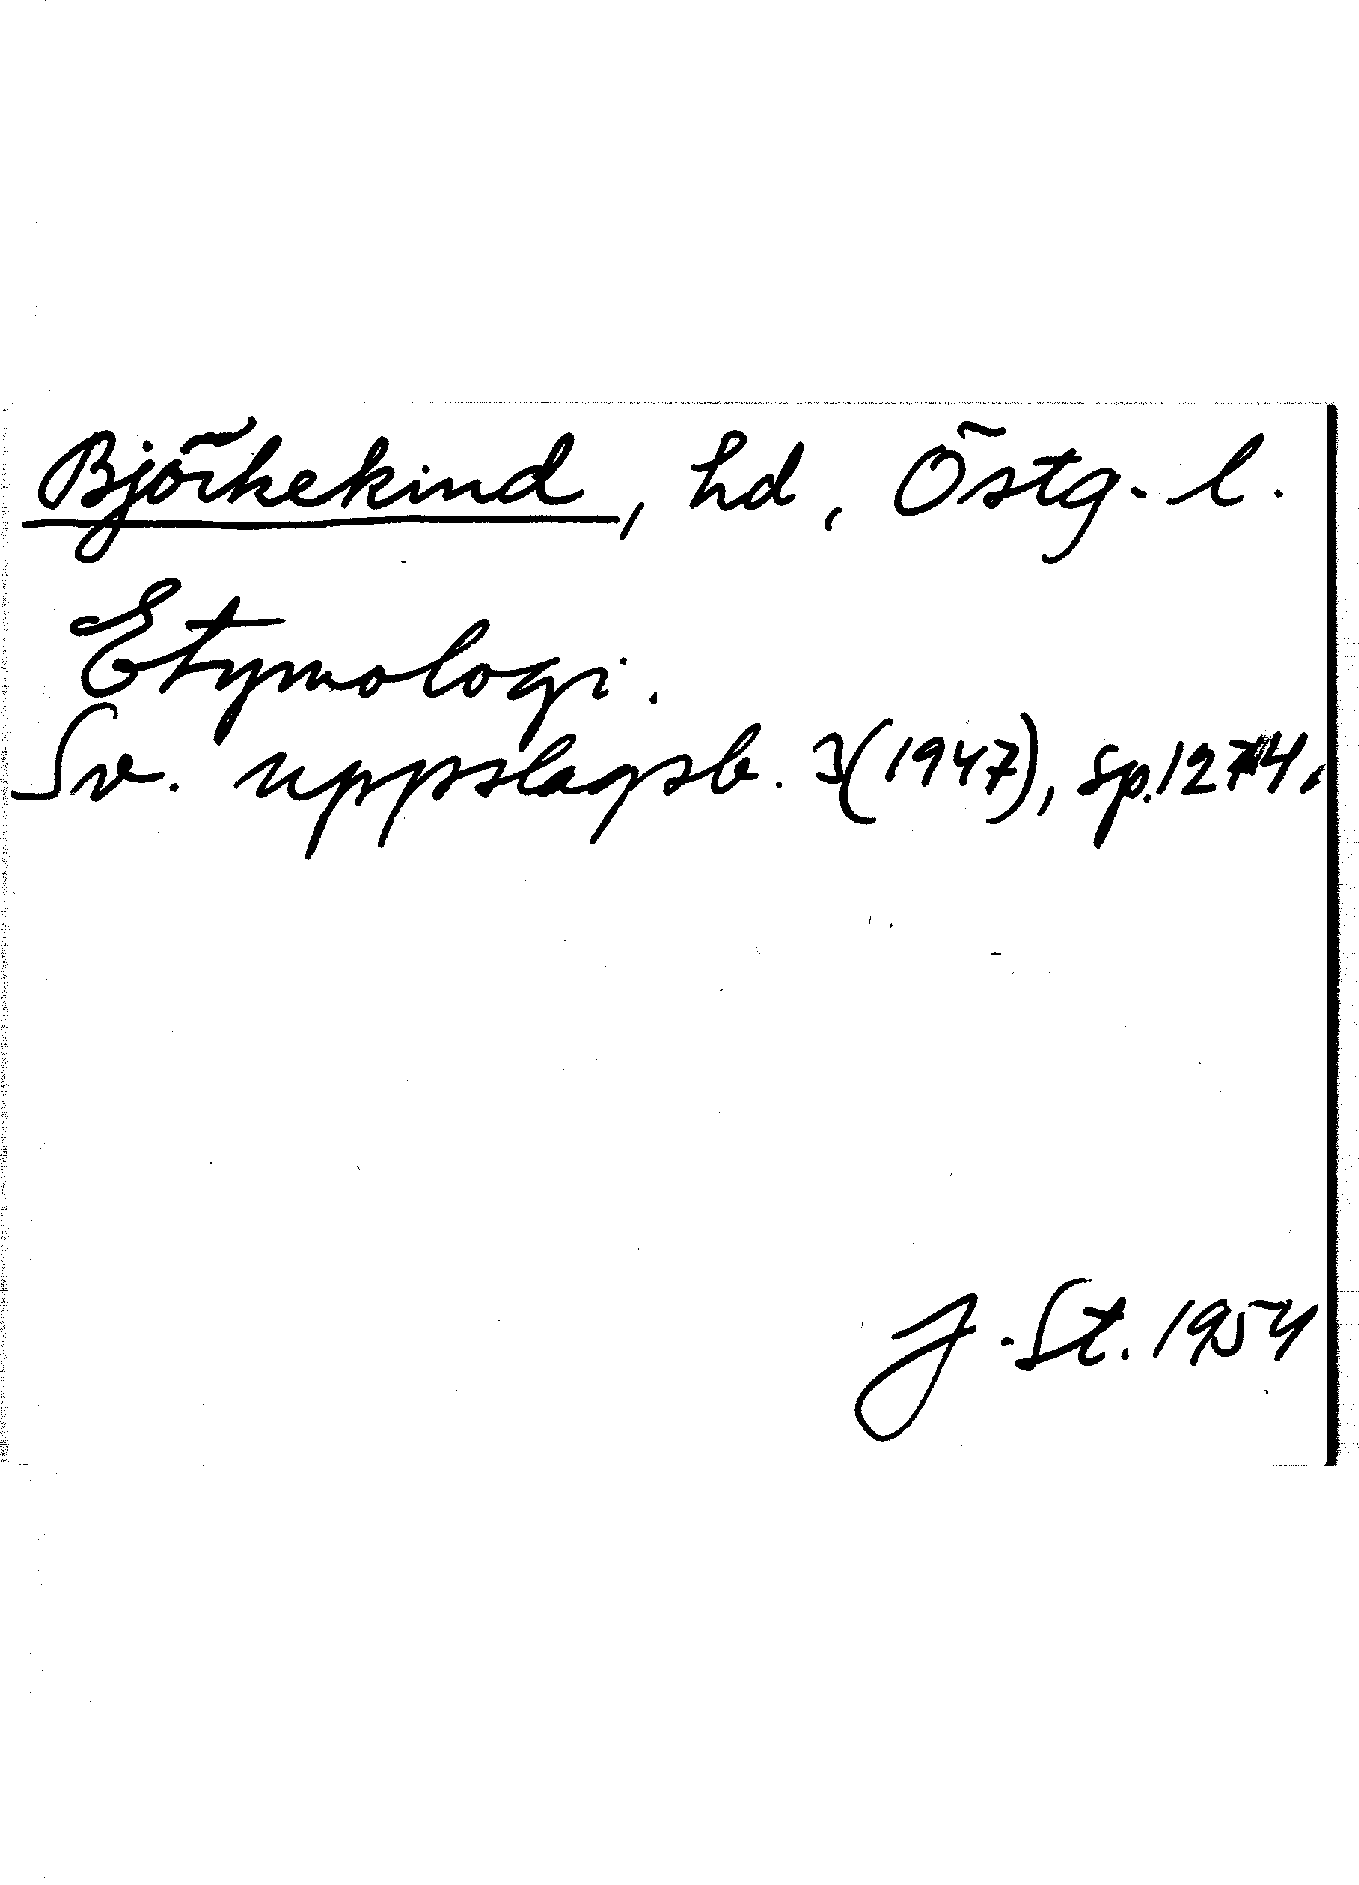 Björkekind, hd, Östg. l.
Etymologi.
Sv. uppslagsb. 3(1947), sp. 1274.
J. St. 1954